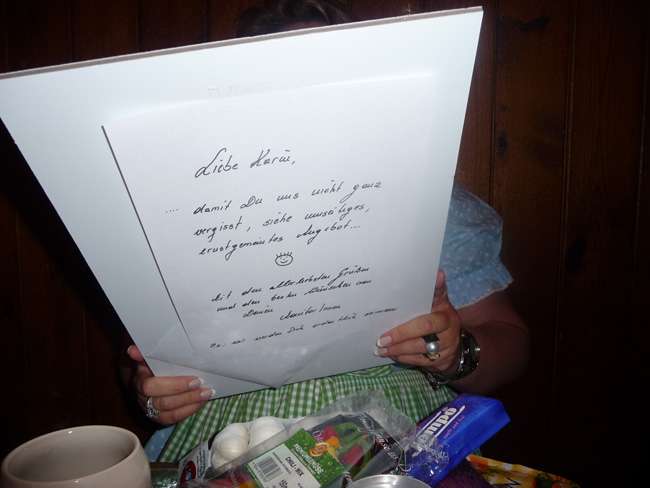 Liebe Karin,
.... damit Du uns nicht ganz
vergisst, siehe umseitiges,
ernstgemeintes Angebot...
Mit den allerliebsten Grüßen
und den besten Wünschen von
Deinen
CHILI MIX
Tempo